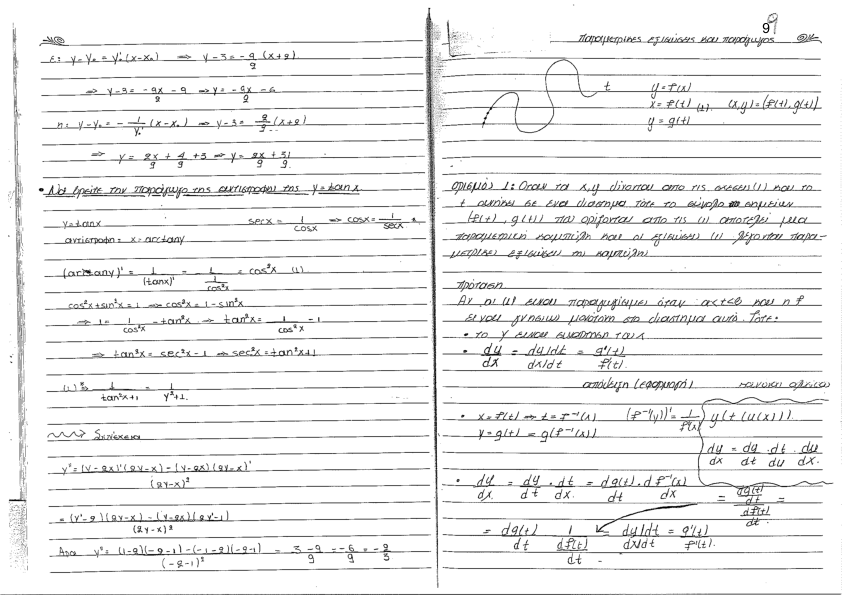 ε: y-y₀ = y₀'(x-x₀) ⇒ y-3 = -9/2 (x+2)
⇒ y-3 = -9x/2 - 9 ⇒ y = -9x/2 - 6
η: y-y₀ = -1/y₀' (x-x₀) ⇒ y-3 = 2/9 (x+2)
⇒ y = 2x/9 + 4/9 + 3 ⇒ y = 2x/9 + 31/9
• Να βρείτε την παράγωγο της αντίστροφης της y=tanx
y=tanx secx = 1/cosx ⇒ cosx = 1/secx *
αντίστροφη: x=arctany
(arctany)' = 1/(tanx)' = 1/(1/cos²x) = cos²x (1)
cos²x+sin²x=1 ⇒ cos²x = 1-sin²x
⇒ 1 = 1/cos²x - tan²x ⇒ tan²x = 1/cos²x - 1
⇒ tan²x = sec²x-1 ⇒ sec²x = tan²x+1
(1) ⇒ 1/(tan²x+1) = 1/(y²+1).
Συνέχεια
y'' = ((y-2x)'(2y-x) - (y-2x)(2y-x)')/(2y-x)²
= ((y'-2)(2y-x) - (y-2x)(2y'-1))/(2y-x)²
Άρα y'' = ((1-2)(-2-1)-(-1-2)(-2-1))/(-2-1)² = (3-9)/9 = -6/9 = -2/3
99
Παραμετρικές εξισώσεις και παράγωγος
t y=f(x)
x=f(t) (1). (x,y)=(f(t), g(t))
y=g(t)
Ορισμός 1: Όταν τα x,y δίνονται από τις σχέσεις (1) και το
t ανήκει σε ένα διάστημα τότε το σύνολο σημείων
(f(t), g(t)) που ορίζονται από τις (1) αποτελεί μια
παραμετρική καμπύλη και οι εξισώσεις (1) λέγονται παρα-
μετρικές εξισώσεις της καμπύλης
Πρόταση
Αν οι (1) είναι παραγωγίσιμες όταν a<t<b και η f
είναι γνησίως μονότονη στο διάστημα αυτό. Τότε:
• το y είναι συνάρτηση του x
• dy/dx = (dy/dt)/(dx/dt) = g'(t)/f'(t).
απόδειξη (εφαρμογή)
• x=f(t) ⇒ t=f⁻¹(x) (f⁻¹(y))' = 1/f'(x) y(t(u(x))).
y=g(t) = g(f⁻¹(x))
dy/dx = dy/dt · dt/du · du/dx.
• dy/dx = dy/dt · dt/dx = dg(t)/dt · d f⁻¹(x)/dx = (dg(t)/dt)/(df(t)/dt) =
= dg(t)/dt · 1/(df(t)/dt) = (dy/dt)/(dx/dt) = g'(t)/f'(t).